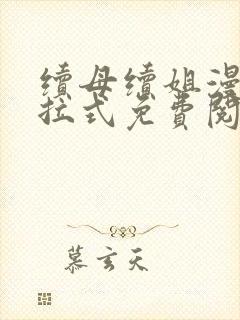 續母續姐漫
拉式免費閱
慕玄天